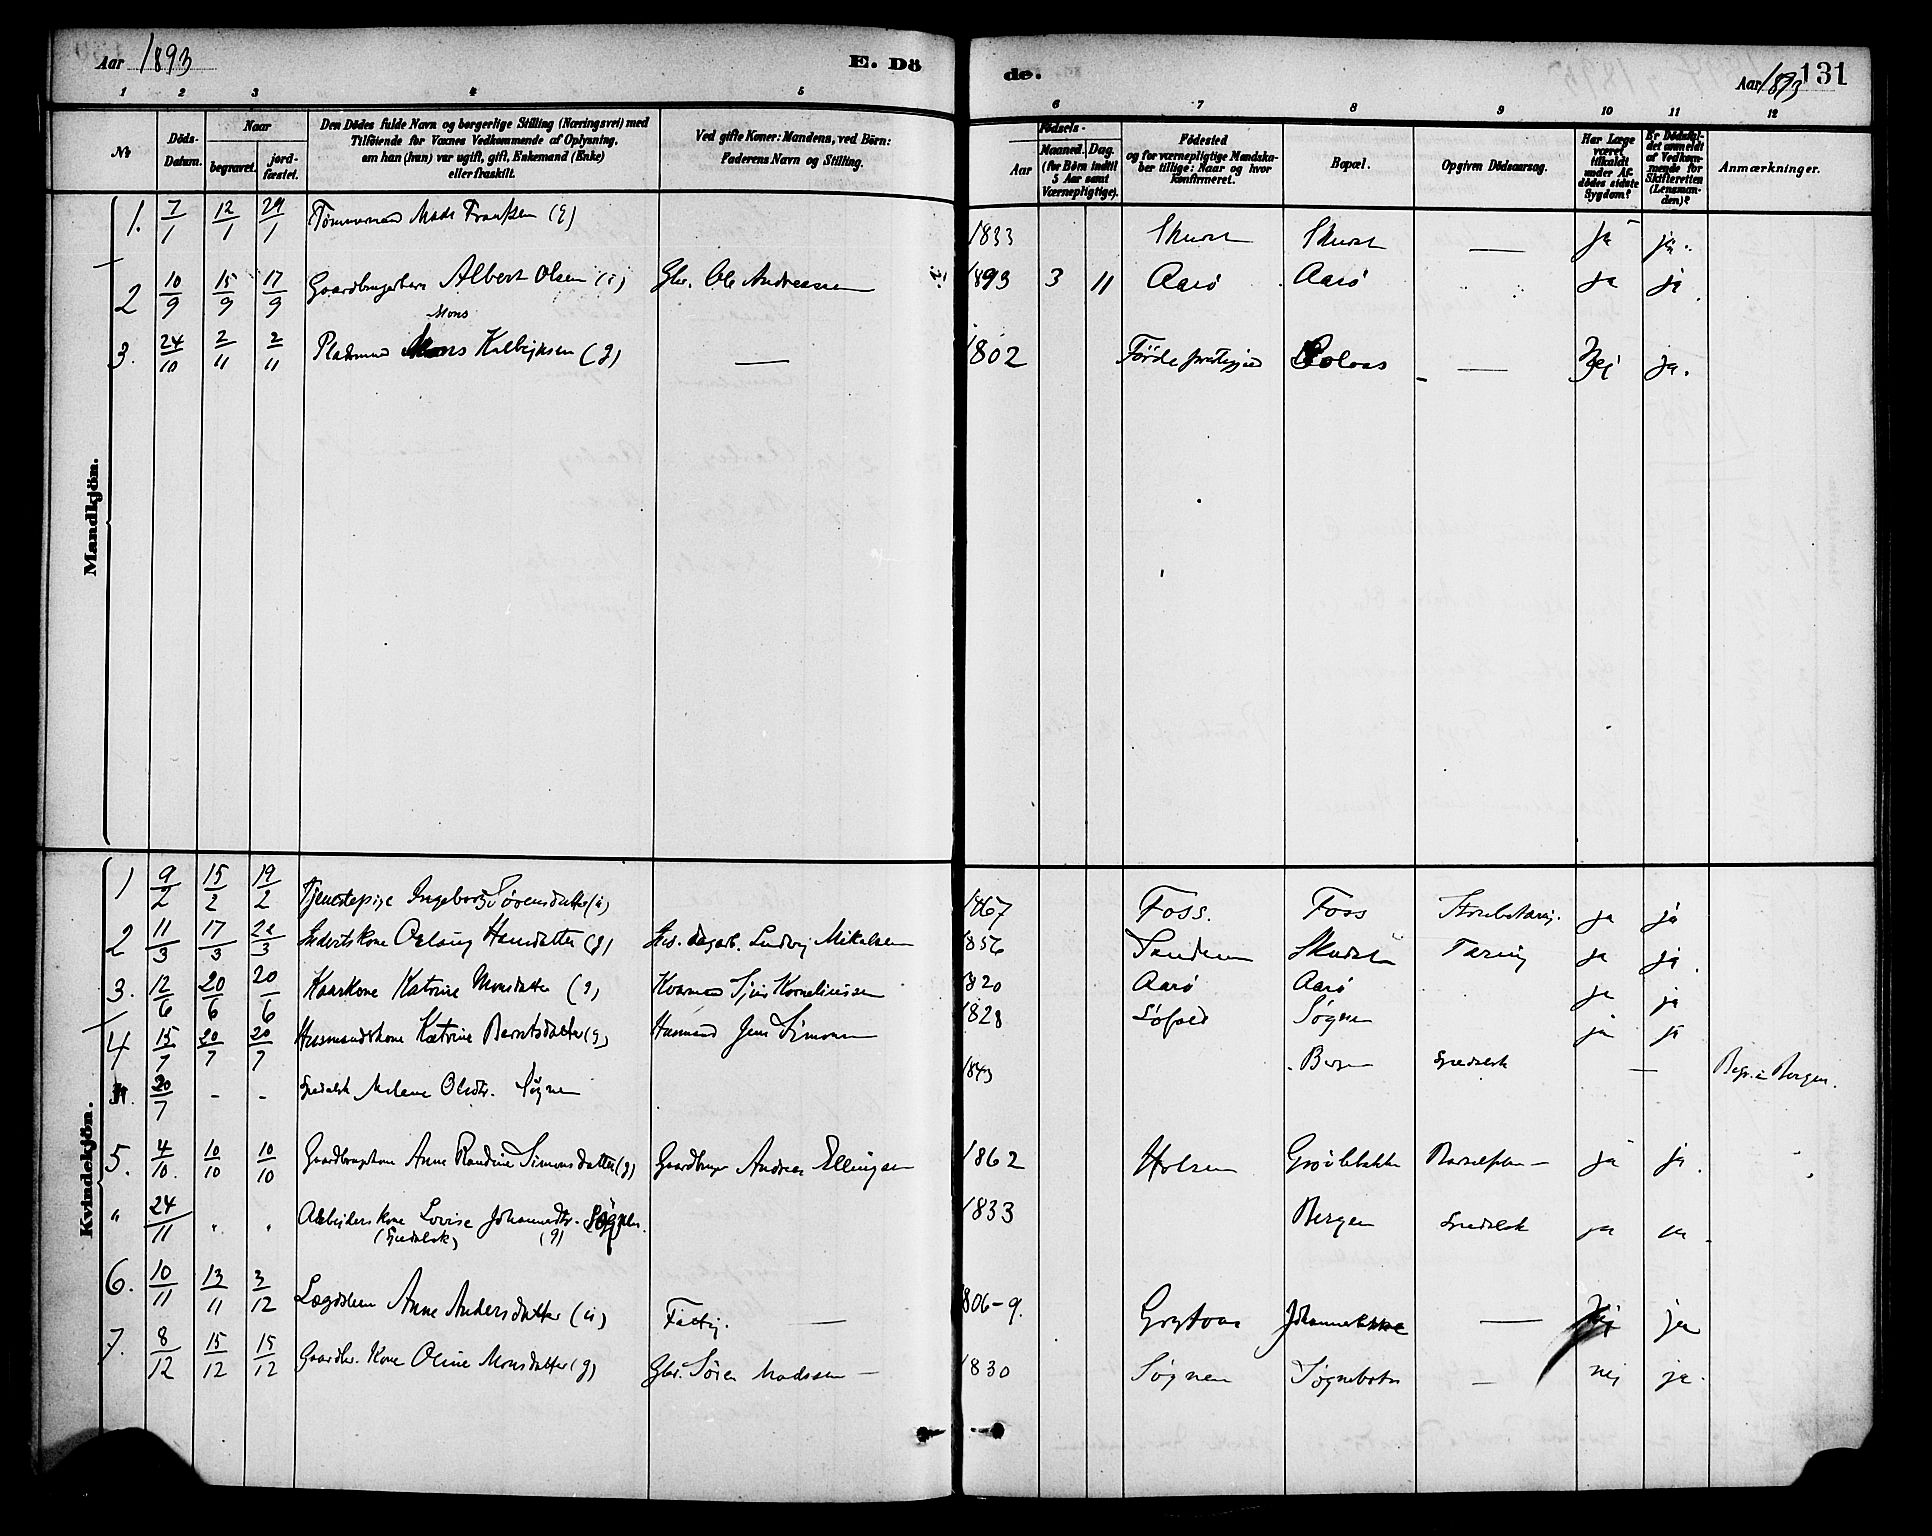 Aar 1893 E. Dö de. Aar 1893 131
1 2 3 4 5 6 7 8 9 10 11 12
№ Döds-Datum. Naar begravet. jord-fæstet. Den Dödes fulde Navn og borgerlige Stilling (Næringsvei) med Tilföiende for Voxnes Vedkommende af Oplysning, om han (hun) var ugift, gift, Enkemand (Enke) eller fraskilt. Ved gifte Koner: Mandens, ved Börn: Faderens Navn og Stilling. Födsels- Aar Maaned. Dag. (for Börn indtil 5 Aar samt Værnepligtige). Födested og for værnepligtige Mandskaber tillige: Naar og hvor konfirmeret. Bopæl. Opgiven Dödsaarsag. Har Læge været tilkaldt under Afdödes sidste Sygdom? Er Dödsfaldet anmeldt af Vedkommende for Skifteretten (Lensmanden)? Anmærkninger.
Mandkjön.
1. 7/1 12/1 29/1 Mads Franssen (g) 1833 ja ja.
2 10/9 15/9 17/9 Gaardbrugerbarn Albert Olsen (i) Gbr. Ole Andreassen 1893 3 11 Aarø Aarø ja ja
Mons
3. 24/10 2/11 2/11 Pladsmand Mons Kolbeinsen (g) — 1802 Förde præstegjeld — Nej ja.
Kvindekjön.
1 9/2 15/2 19/2 Tjenestepige Ingeborg Sørensdatter (u) 1867 Foss. Foss ja ja
2 11/3 17/3 Oslaug Hansdatter (g) Ludvig Mikelsen 1856 Tæring ja ja.
3. 12/6 20/6 20/6 Kaarkone Katrine Monsdatter (g) Kaarmand Korneliussen 1820 Aarø Aarø ja ja
4 15/7 20/7 20/7 Husmandskone Katrine Berntsdatter (g) Husmand Jens Simonsen 1828 Søgnen ja ja
20/7 - - Spedalsk Melene Olsdtr. Søgnen 1843 Bergen Spedalsk — Begr. i Bergen.
5. 4/10. 10/10 10/10 Gaardbrugerkone Anne Randine Simonsdatter (g) Gaardbruger Andreas Ellingsen 1862 Holsen Grøvlebakke ja ja.
" 24/11 " " Arbeiderskone Lovise Johannesdtr. Søgnen.
(Spedalsk) (g) 1833 Bergen Spedalsk ja
6. 10/11 13/11 3/12 Lægdslem Anne Andersdatter (u) Fattig. — 1806-9. — Nej ja
7. 8/12 15/12 15/12 Gaardbr. Kone Oline Monsdatter (g) Gbr. Søren Madssen — 1830 Søgnen Søgnebotn — nej ja.